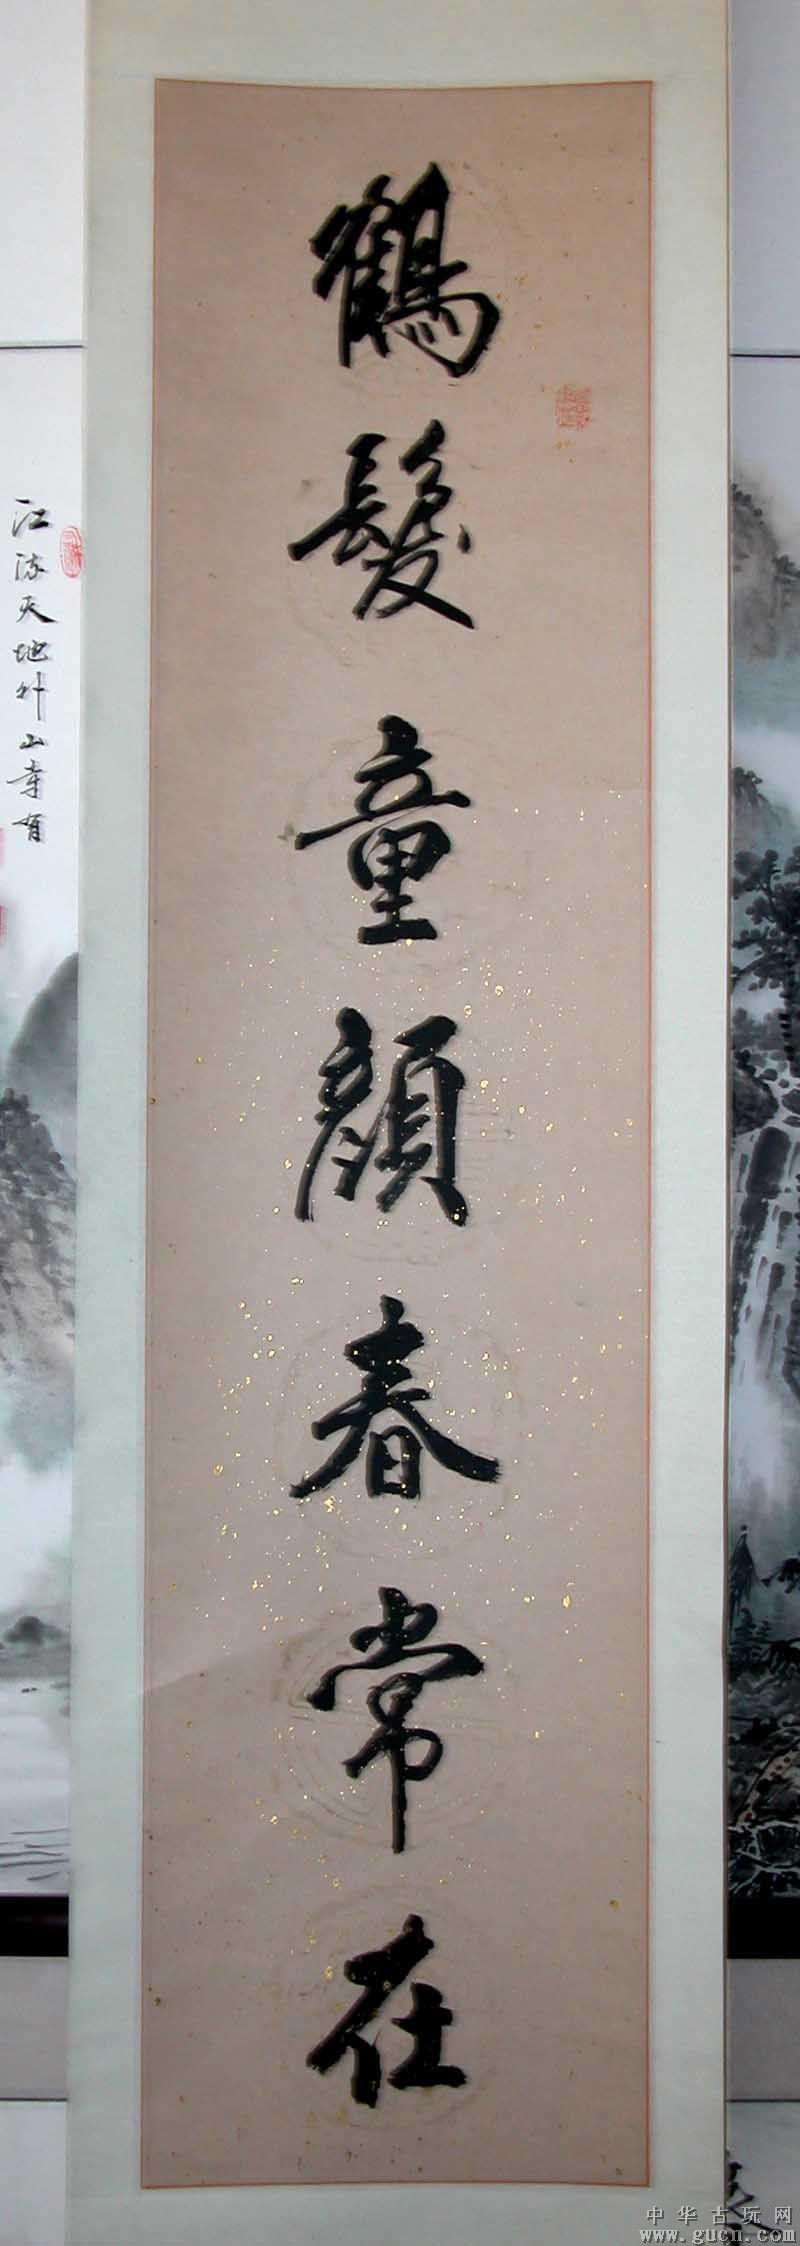 鶴髮童顔春常在
江流天地外山色有
中华古玩网
www.gucn.com